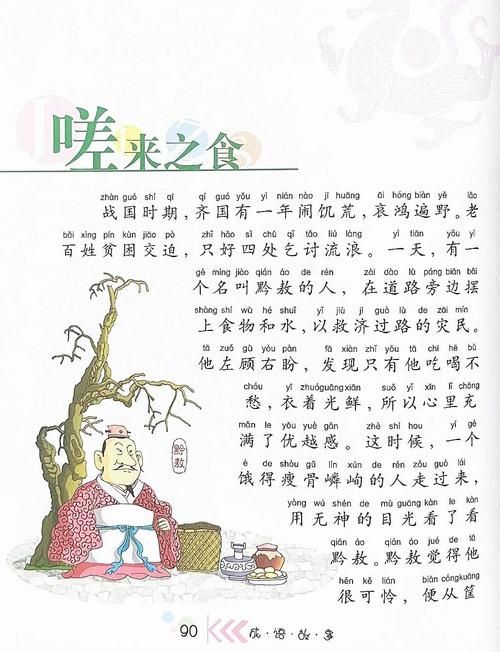 嗟来之食
zhàn guó shí qī qí guó yǒu yì nián nào jī huāng āi hóng biàn yě lǎo
战国时期，齐国有一年闹饥荒，哀鸿遍野。老
bǎi xìng pín kùn jiāo pò zhǐ hǎo sì chù qǐ tǎo liú làng yì tiān yǒu yí
百姓贫困交迫，只好四处乞讨流浪。一天，有一
gè míng jiào qián áo de rén zài dào lù páng biān bǎi
个名叫黔敖的人，在道路旁边摆
shàng shí wù hé shuǐ yǐ jiù jì guò lù de zāi mín
上食物和水，以救济过路的灾民。
tā zuǒ gù yòu pàn fā xiàn zhǐ yǒu tā chī hē bù
他左顾右盼，发现只有他吃喝不
chóu yī zhuóguāngxiān suǒ yǐ xīn lǐ chōng
愁，衣着光鲜，所以心里充
mǎn le yōu yuè gǎn zhè shí hou yí gè
满了优越感。这时候，一个
è de shòu gǔ lín xún de rén zǒu guò lái
饿得瘦骨嶙峋的人走过来，
yòng wú shén de mù guāng kàn le kàn
用无神的目光看了看
qián áo qián áo jué de tā
黔敖。黔敖觉得他
hěn kě lián biàn cóngkuāng
很可怜，便从筐
黔敖
90 成·语·故·事